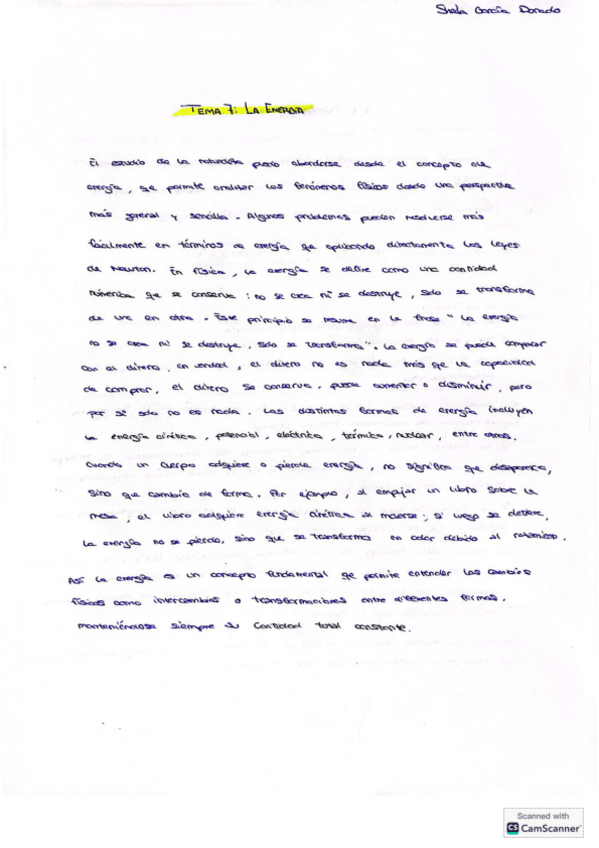 Shaila García Dorado
TEMA 7: LA ENERGÍA
El estudio de la naturaleza puede abordarse desde el concepto de
energía, que permite analizar los fenómenos físicos desde una perspectiva
más general y sencilla. Algunos problemas pueden resolverse más
fácilmente en términos de energía que aplicando directamente las leyes
de Newton. En física, la energía se define como una cantidad
numérica que se conserva: no se crea ni se destruye, solo se transforma
de una en otra. Este principio se resume en la frase "La energía
no se crea ni se destruye, solo se transforma". La energía se puede comparar
con el dinero, en verdad, el dinero no es nada más que la capacidad
de comprar, el dinero se conserva, puede aumentar o disminuir, pero
por sí solo no es nada. Las distintas formas de energía incluyen
la energía cinética, potencial, eléctrica, térmica, nuclear, entre otras.
Cuando un cuerpo adquiere o pierde energía, no significa que desaparezca,
sino que cambia de forma. Por ejemplo, al empujar un libro sobre la
mesa, el libro adquiere energía cinética al moverse; si luego se detiene,
la energía no se pierde, sino que se transforma en calor debido al rozamiento.
Así la energía es un concepto fundamental que permite entender los cambios
físicos como intercambios o transformaciones entre diferentes formas,
manteniéndose siempre su cantidad total constante.
Scanned with
CS CamScanner